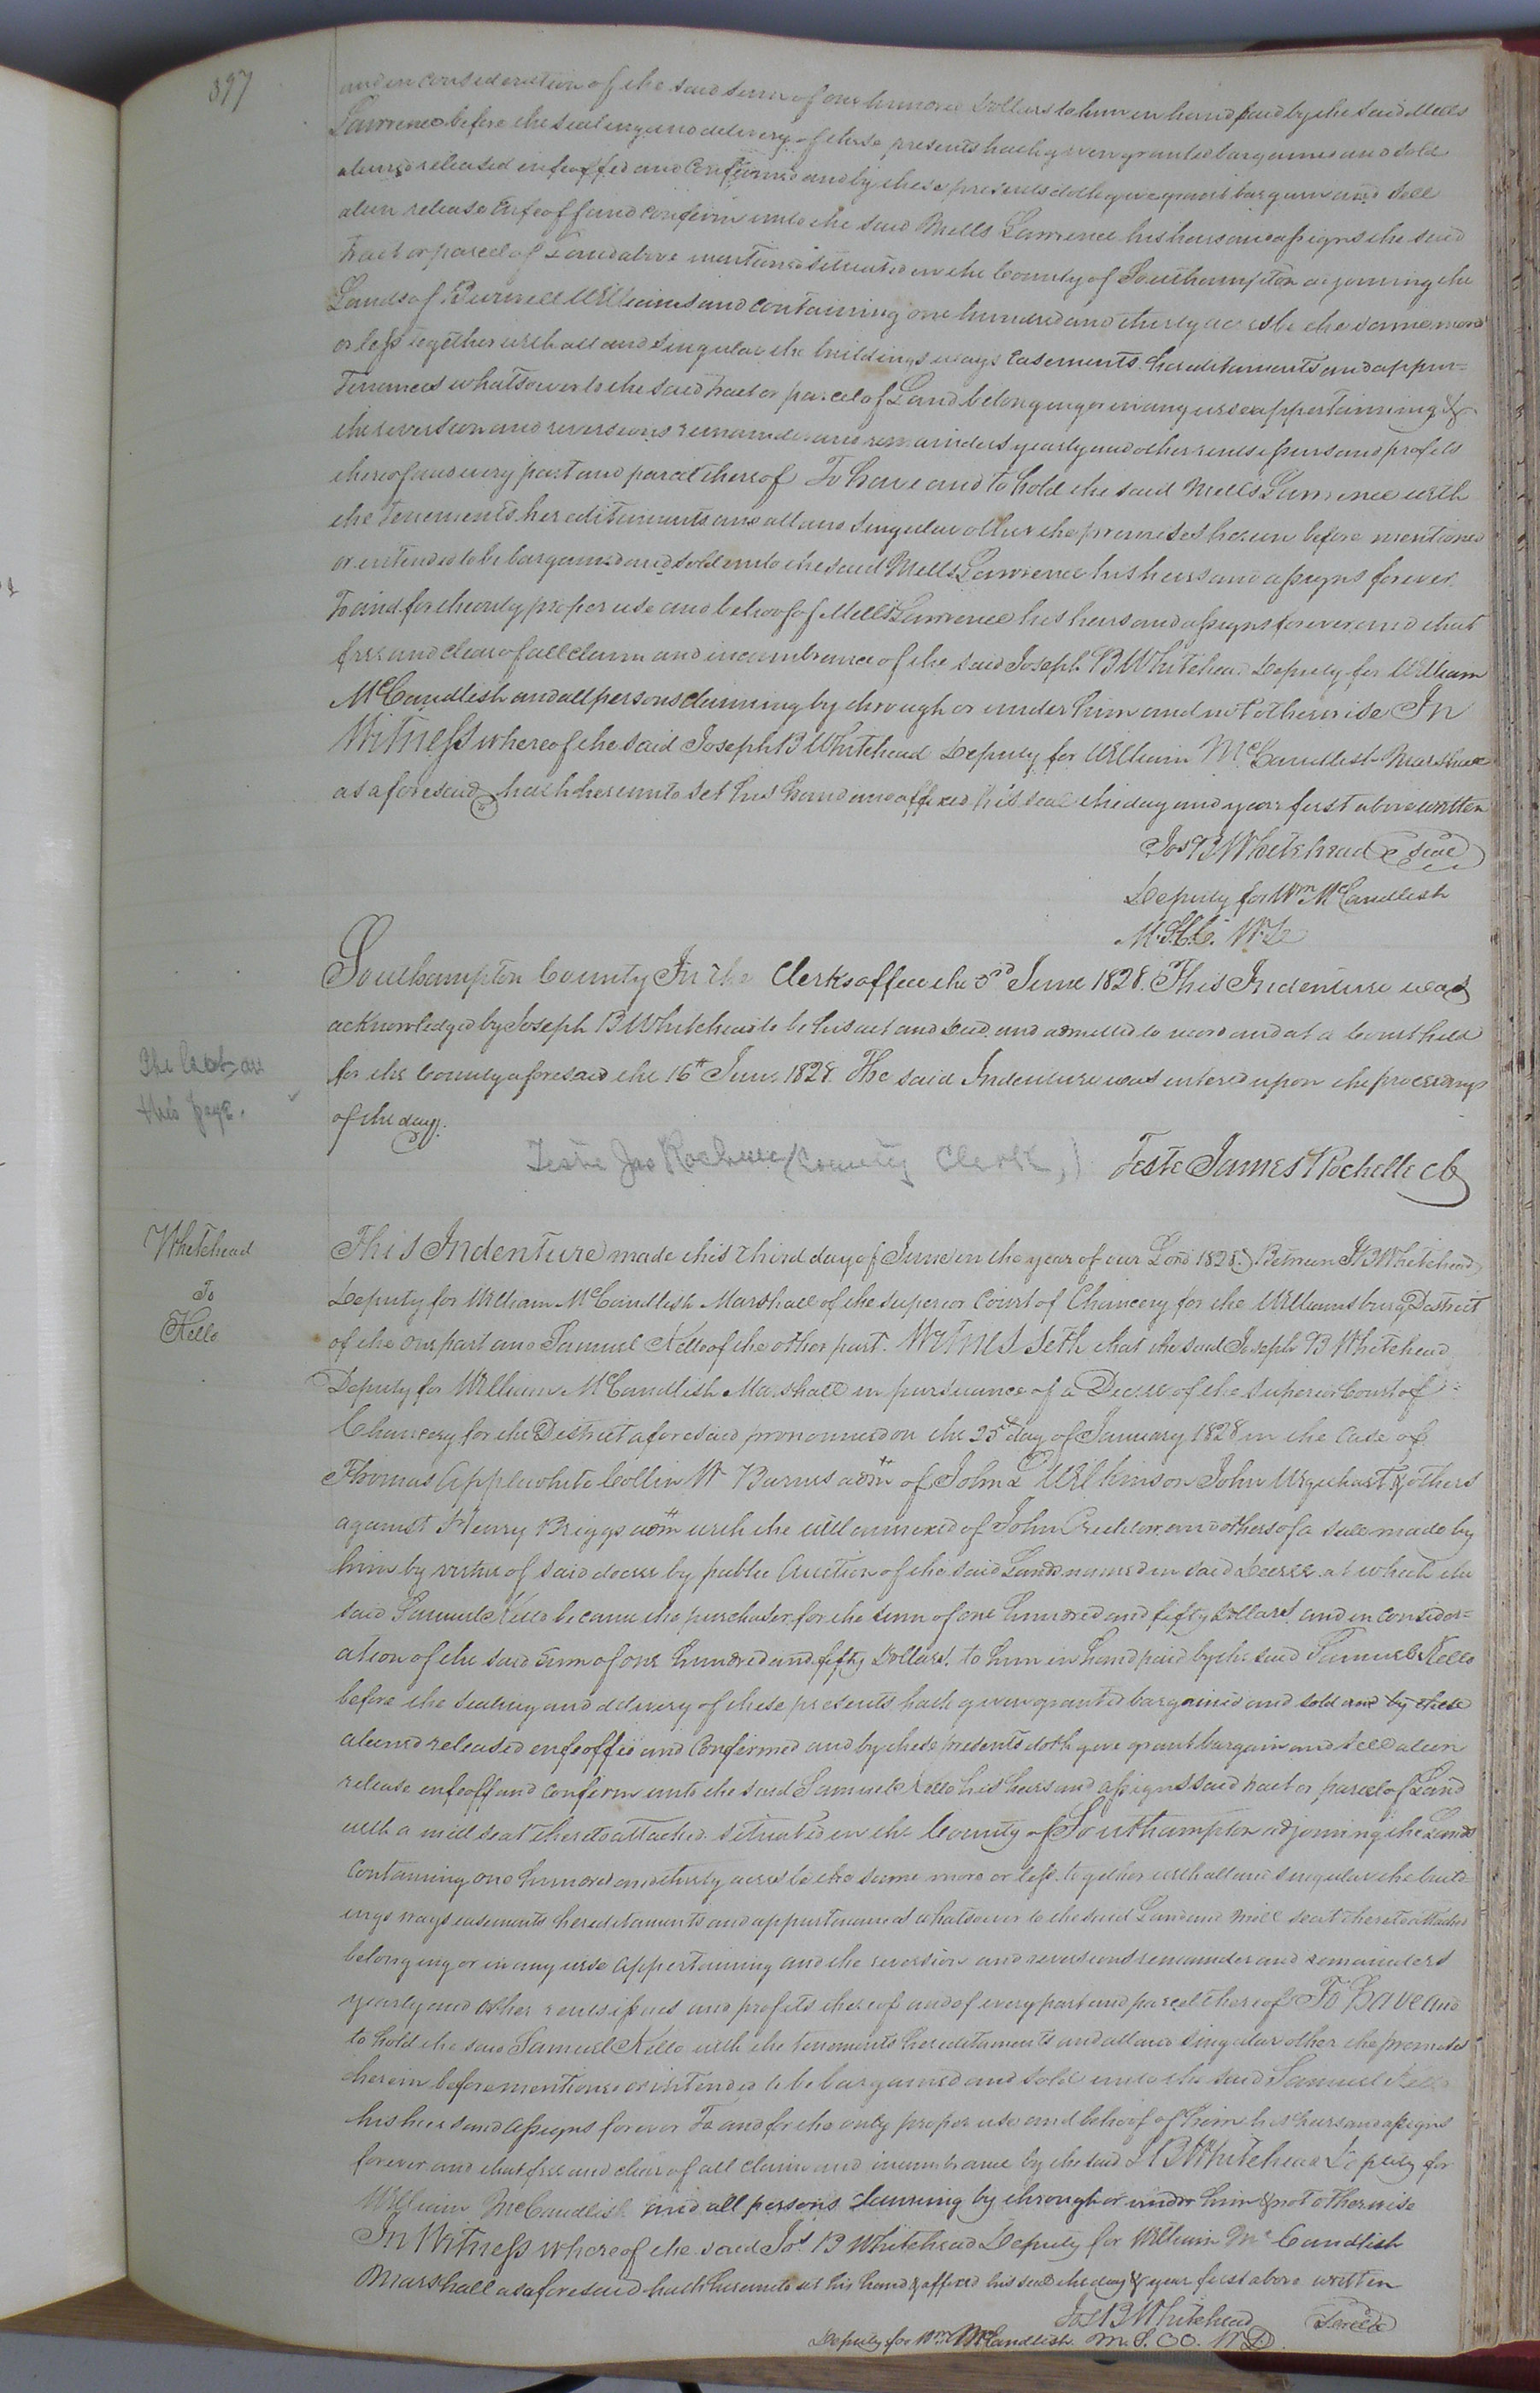 397
and in consideration of the said sum of one hundred Dollars to him in hand paid by the said Mills
Lawrence before the sealing and delivery of these presents hath given granted bargained and sold
aliened released enfeoffed and Confirmed and by these presents doth give grant bargain and sell
alien release Enfeoff and confirm unto the said Mills Lawrence his heirs and assigns the said
tract or parcel of Land above mentioned situated in the County of Southampton adjoining the
Lands of Burwell Williams and containing one hundred and thirty acres be the same more
or less together with all and singular the buildings ways Easements hereditaments and appur=
tenances whatsoever to the said tract or parcel of Land belonging or in any wise appertaining &
the reversion and reversions remainder and remainders yearly and other rents issues and profits
thereof and every part and parcel thereof To have and to hold the said Mills Lawrence with
the tenements hereditaments and all and singular other the premises herein before mentioned
or intended to be bargained and sold unto the said Mills Lawrence his heirs and assigns forever.
To and for the only proper use and behoof of Mills Lawrence his heirs and assigns forever and that
free and clear of all claim and incumbrance of the said Joseph B Whitehead Deputy for William
McCandlish and all persons claiming by through or under him and not otherwise In
Witness whereof the said Joseph B Whitehead Deputy for William McCandlish Marshall
as aforesaid hath hereunto set his hand and affixed his seal the day and year first above written
Jos B Whitehead seal
Deputy for Wm McCandlish
M.S.C.C. W.D
Southampton County In the Clerks office the 3rd June 1828. This Indenture was
acknowledged by Joseph B Whitehead to be his act and deed and admitted to record and at a Court held
for the County aforesaid the 16th June 1828. The said Indenture was entered upon the proceedings
of the day.
this page.
Teste Jas Rochelle (County Clerk,)
Teste James Rochelle cl
Whitehead
To
Kello
This Indenture made this third day of June in the year of our Lord 1828. Between J B Whitehead
Deputy for William McCandlish Marshall of the superior Court of Chancery for the Williamsburg District
of the one part and Samuel Kello of the other part. Witnesseth that the said Joseph B Whitehead
Deputy for William McCandlish Marshall in pursuance of a Decree of the superior Court of
Chancery for the District aforesaid pronounced on the 25th day of January 1828 in the Case of
Thomas Applewhite Collin W Barnes adm of John D Wilkinson John Urquhart & others
against Henry Briggs adm with the will annexed of John and others of a sale made by
him by virtue of said decree by public Auction of the said Lands named in said Decree at which the
said Samuel Kello became the purchaser for the sum of one hundred and fifty Dollars and in consider=
ation of the said sum of one hundred and fifty Dollars to him in hand paid by the said Samuel Kello
before the sealing and delivery of these presents hath given granted bargained and sold and by these
aliened released enfeoffed and Confirmed and by these presents doth give grant bargain and sell alien
release enfeoff and confirm unto the said Samuel Kello his heirs and assigns said tract or parcel of Land
with a mill seat thereto attached situated in the County of Southampton adjoining the Lands
Containing one hundred and thirty acres be the same more or less together with all and singular the build
ings ways easements hereditaments and appurtenances whatsoever to the said Land and mill seat thereto attached
belonging or in any wise appertaining and the reversion and reversions remainder and remainders
yearly and other rents issues and profits thereof and of every part and parcel thereof To Have and
to hold the said Samuel Kello with the tenements hereditaments and all and singular other the premises
herein before mentioned or intended to be bargained and sold unto the said Samuel Kello
his heirs and assigns forever To and for the only proper use and behoof of him his heirs and assigns
forever and that free and clear of all claim and incumbrance by the said J B Whitehead Deputy for
William McCandlish and all persons Claiming by through or under him & not otherwise
In Witness whereof the said Jos B Whitehead Deputy for William McCandlish
Marshall as aforesaid hath hereunto set his hand & affixed his seal the day & year first above written
Jos B Whitehead Seal
Deputy for Wm McCandlish M.S.CC. W D.